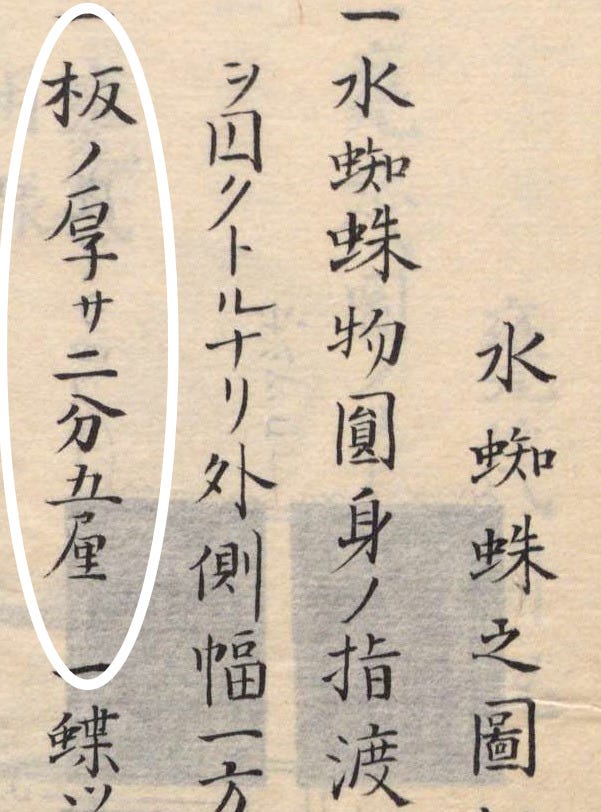 水蜘蛛之圖
一水蜘蛛物圓身ノ指渡
シ囚クトルナリ外側幅一方
一板ノ厚サ二分五厘 一蝶ツ